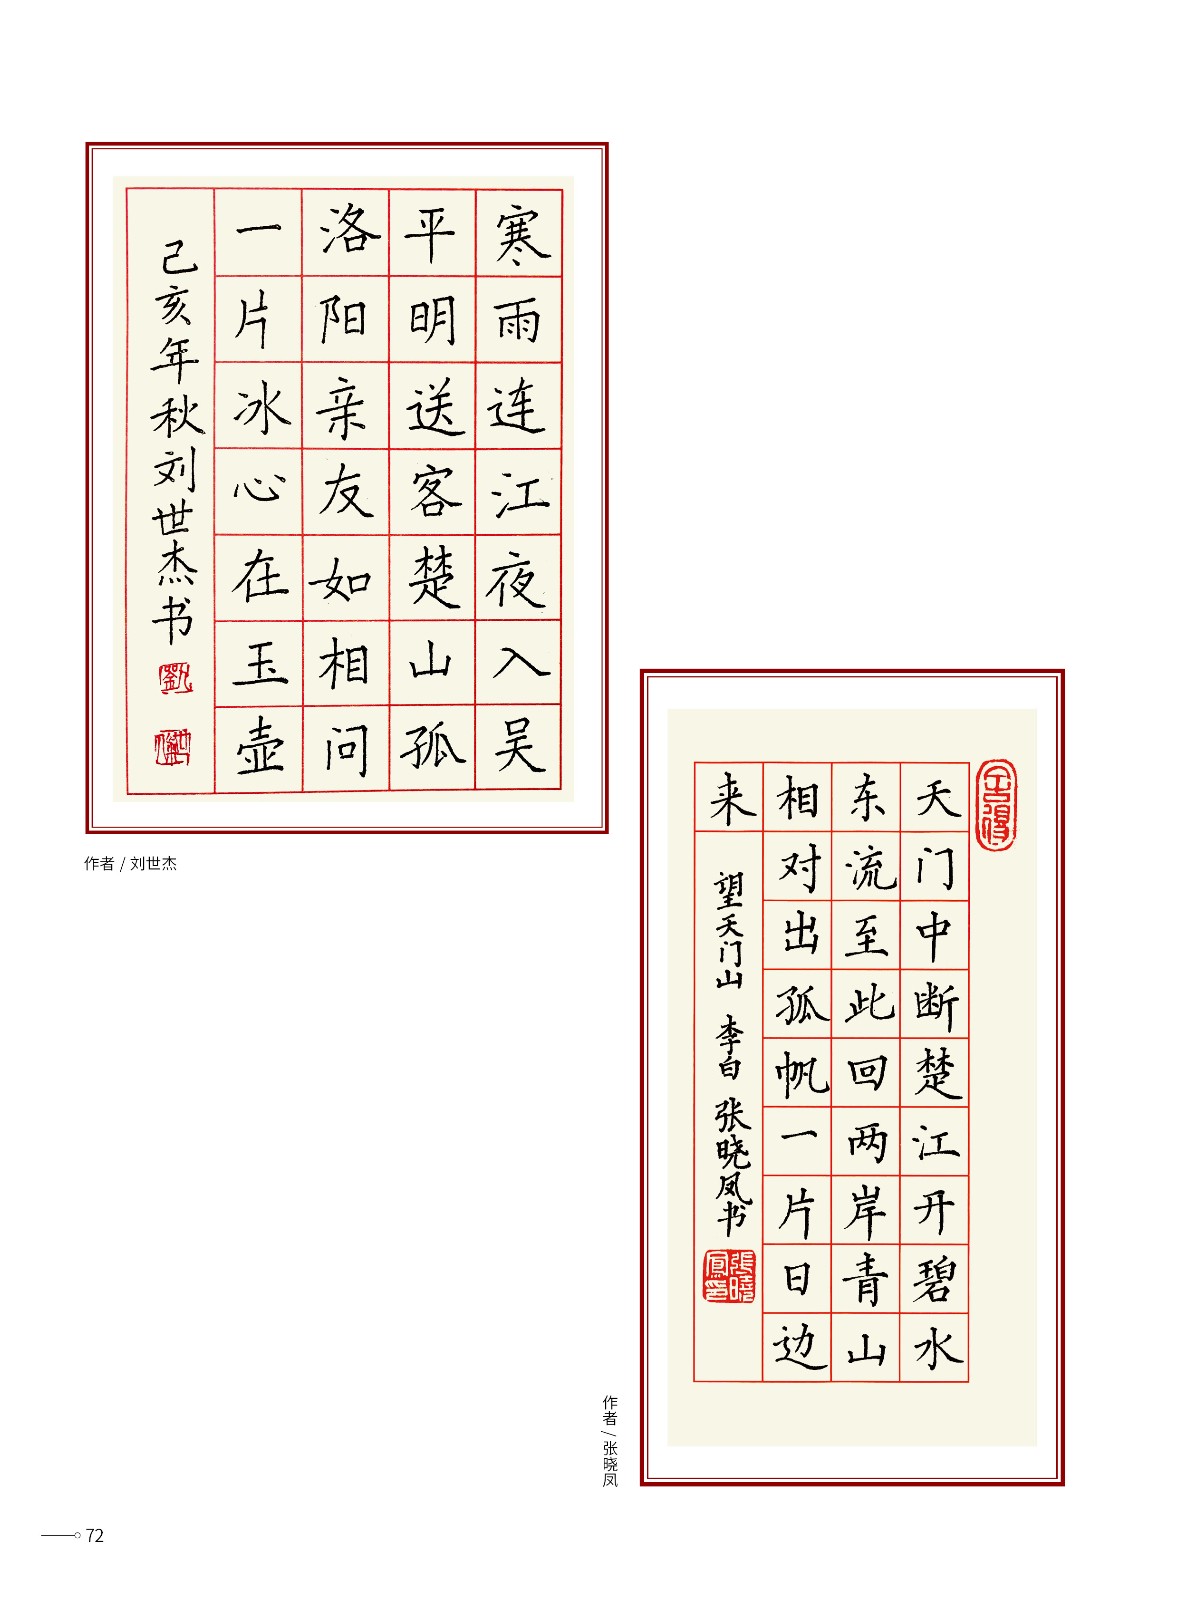 寒雨连江夜入吴
平明送客楚山孤
洛阳亲友如相问
一片冰心在玉壶
己亥年秋刘世杰书
作者 / 刘世杰
天门中断楚江开碧水
东流至此回两岸青山
相对出孤帆一片日边
来
望天门山 李白 张晓凤书
張曉鳳印
作者 / 张晓凤
72